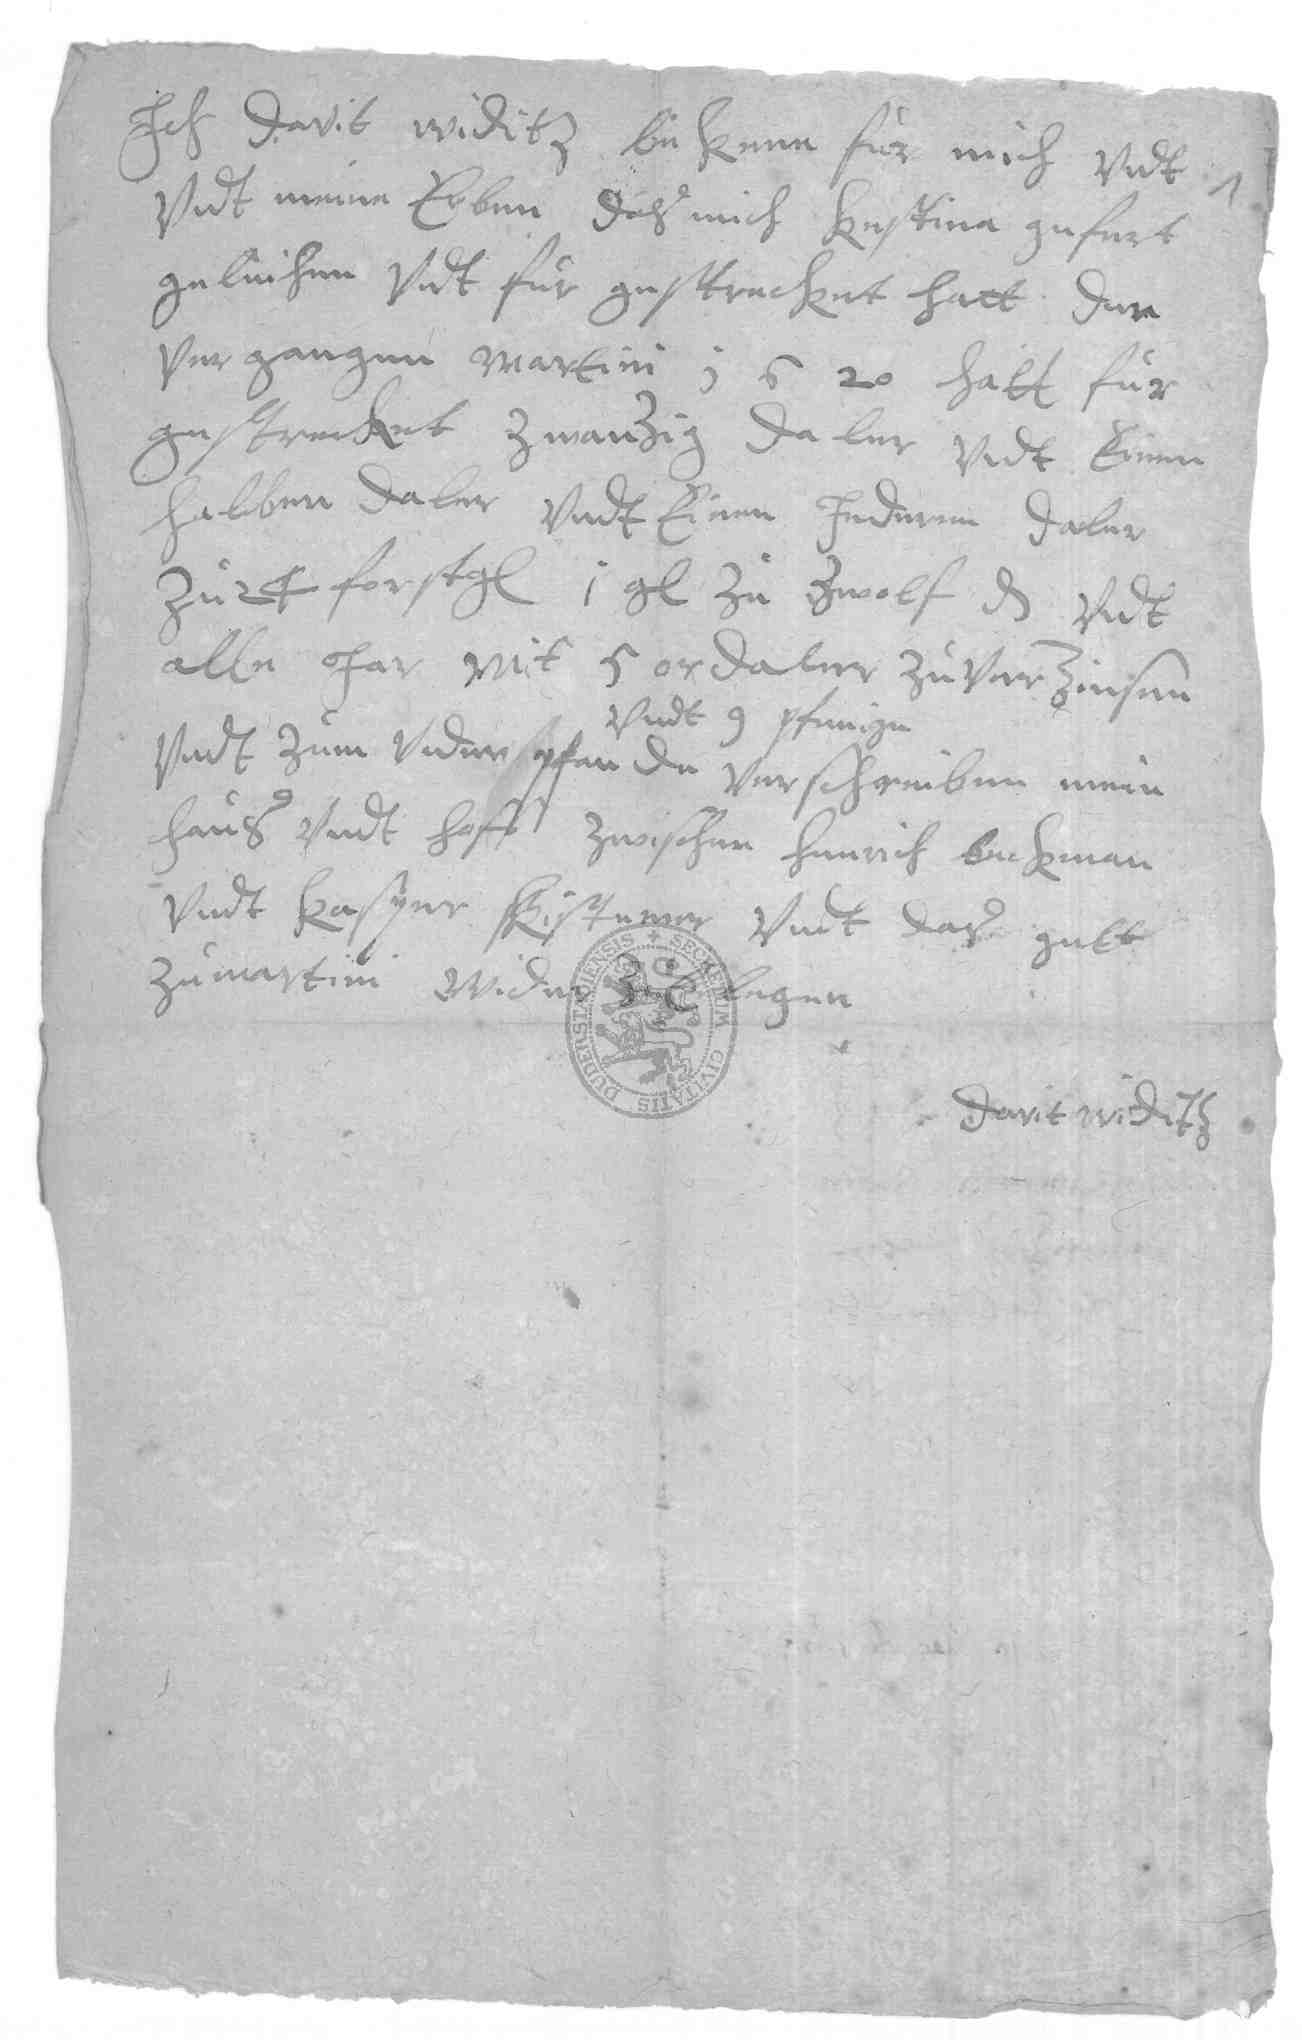 Ich davit widitz bekene für mich Vndt
Vndt meine Erben das mich kestina
geleihen Vndt für gestrecket hatt den
Vergangen martini 1 6 20 hatt für
gestrecket zwanzig daler Vndt Einen
halben daler Vndt Einen Jederen daler
zu 24 forstgl 1 gl zu zwolf d Vndt
alle Jar mit 5 ordaler zu Verzinsen
Vndt 9 pfenige
Vndt zum Vnderpfande Verschreiben mein
haus Vndt hoff zwischen henrich bekman
Vndt kasper Vndt das gelt
zu martini wider legen
davit widitz
1
SECRETUM CIVITATIS DUDERSTADIENSIS